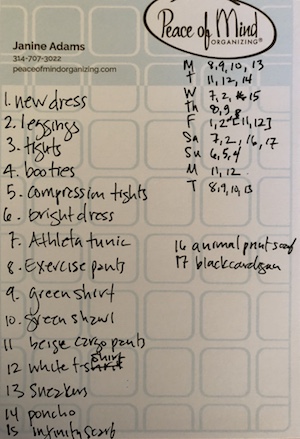 Peace of Mind
ORGANIZING®
Janine Adams
314-707-3022
peaceofmindorganizing.com
M 8,9,10,13
T 11,12,14
W 7,2,15
Th 8,9
F 1,2 [11,12]
Sa 7,2,16,17
Su 6,5,4
M 11,12
T 8,9,10,13
1. new dress
2. leggings
3. tights
4. booties
5. compression tights
6. bright dress
7. Athleta tunic
8. Exercise pants
9. green shirt
10. green shawl
11 beige cargo pants
12 white t-shirt
13 sneakers
14 poncho
15 infinity scarf
16 animal print scarf
17 black cardigan